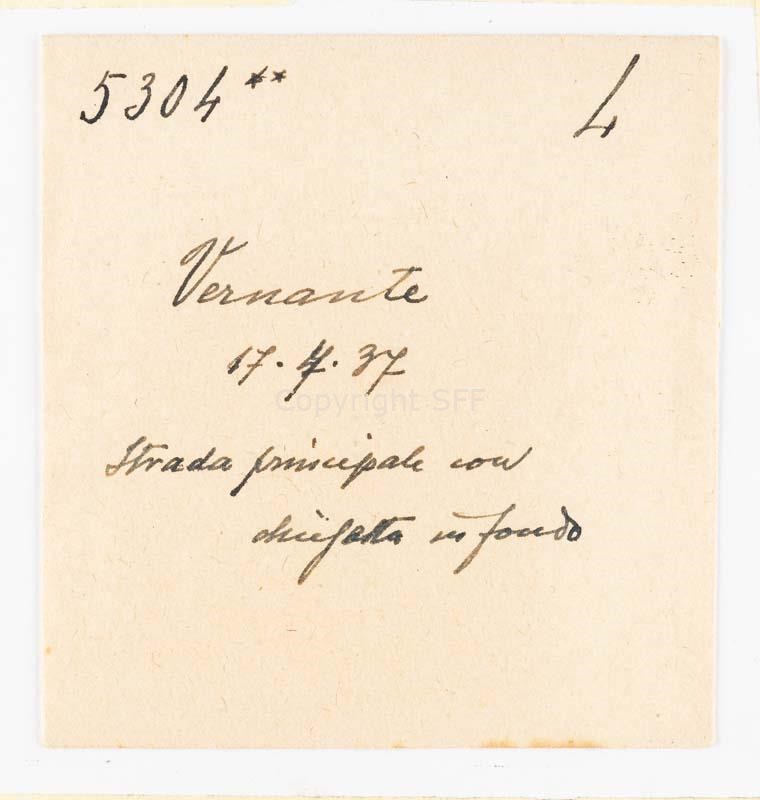 5304** 4
Vernante
17.4.37
Copyright SFF
Strada principale con
chiesetta in fondo